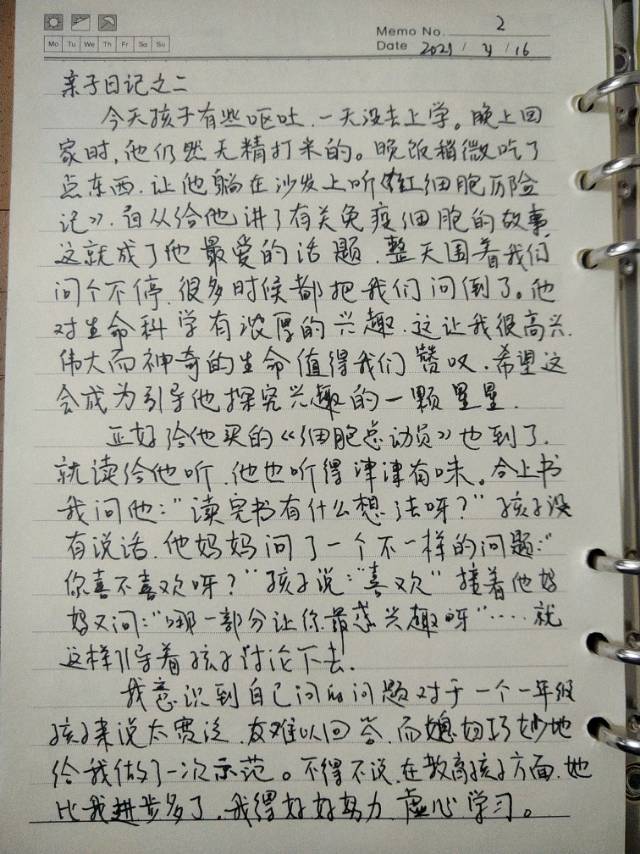 Memo No. 2
Mo Tu We Th Fr Sa Su
Date 2021 / 4 / 16
亲子日记之二
今天孩子有些呕吐、一天没去上学。晚上回
家时,他仍然无精打采的。晚饭稍微吃了
点东西,让他躺在沙发上听《红细胞历险
记》,自从给他讲了有关免疫细胞的故事
这就成了他最爱的话题,整天围着我们
问个不停,很多时候都把我们问倒了。他
对生命科学有浓厚的兴趣,这让我很高兴,
伟大而神奇的生命值得我们赞叹,希望这
会成为引导他探究兴趣的一颗星星.
正好给他买的《细胞总动员》也到了,
就读给他听,他也听得津津有味。合上书
我问他:"读完书有什么想法呀?"孩子没
有说话,他妈妈问了一个不一样的问题:"
你喜不喜欢呀?"孩子说:"喜欢"接着他妈
妈又问:"哪一部分让你最感兴趣呀"……就
这样引导着孩子讨论下去.
我意识到自己问的问题对于一个一年级
孩子来说太宽泛,友难以回答,而媳妇巧妙地
给我做了一次示范。不得不说,在教育孩子方面,她
比我进步多了,我得好好努力,虚心学习。